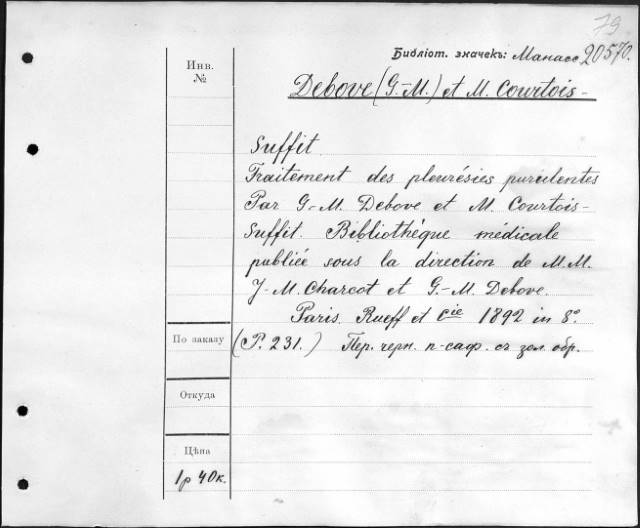 79
Библіот. значекъ: Манасс 20570.
Инв.
№
Debove (G.-M.) et M. Courtois-
Suffit.
Traitement des pleurésies purulentes
Par G.-M. Debove et M. Courtois-
Suffit. Bibliothéque médicale
publiée sous la direction de M.M.
J.-M. Charcot et G.-M. Debove.
Paris. Rueff et Cie 1892 in 8°.
По заказу
(P. 231.) Пер. черн. п-саф. съ зол. обр.
Откуда
Цѣна
1р 40к.